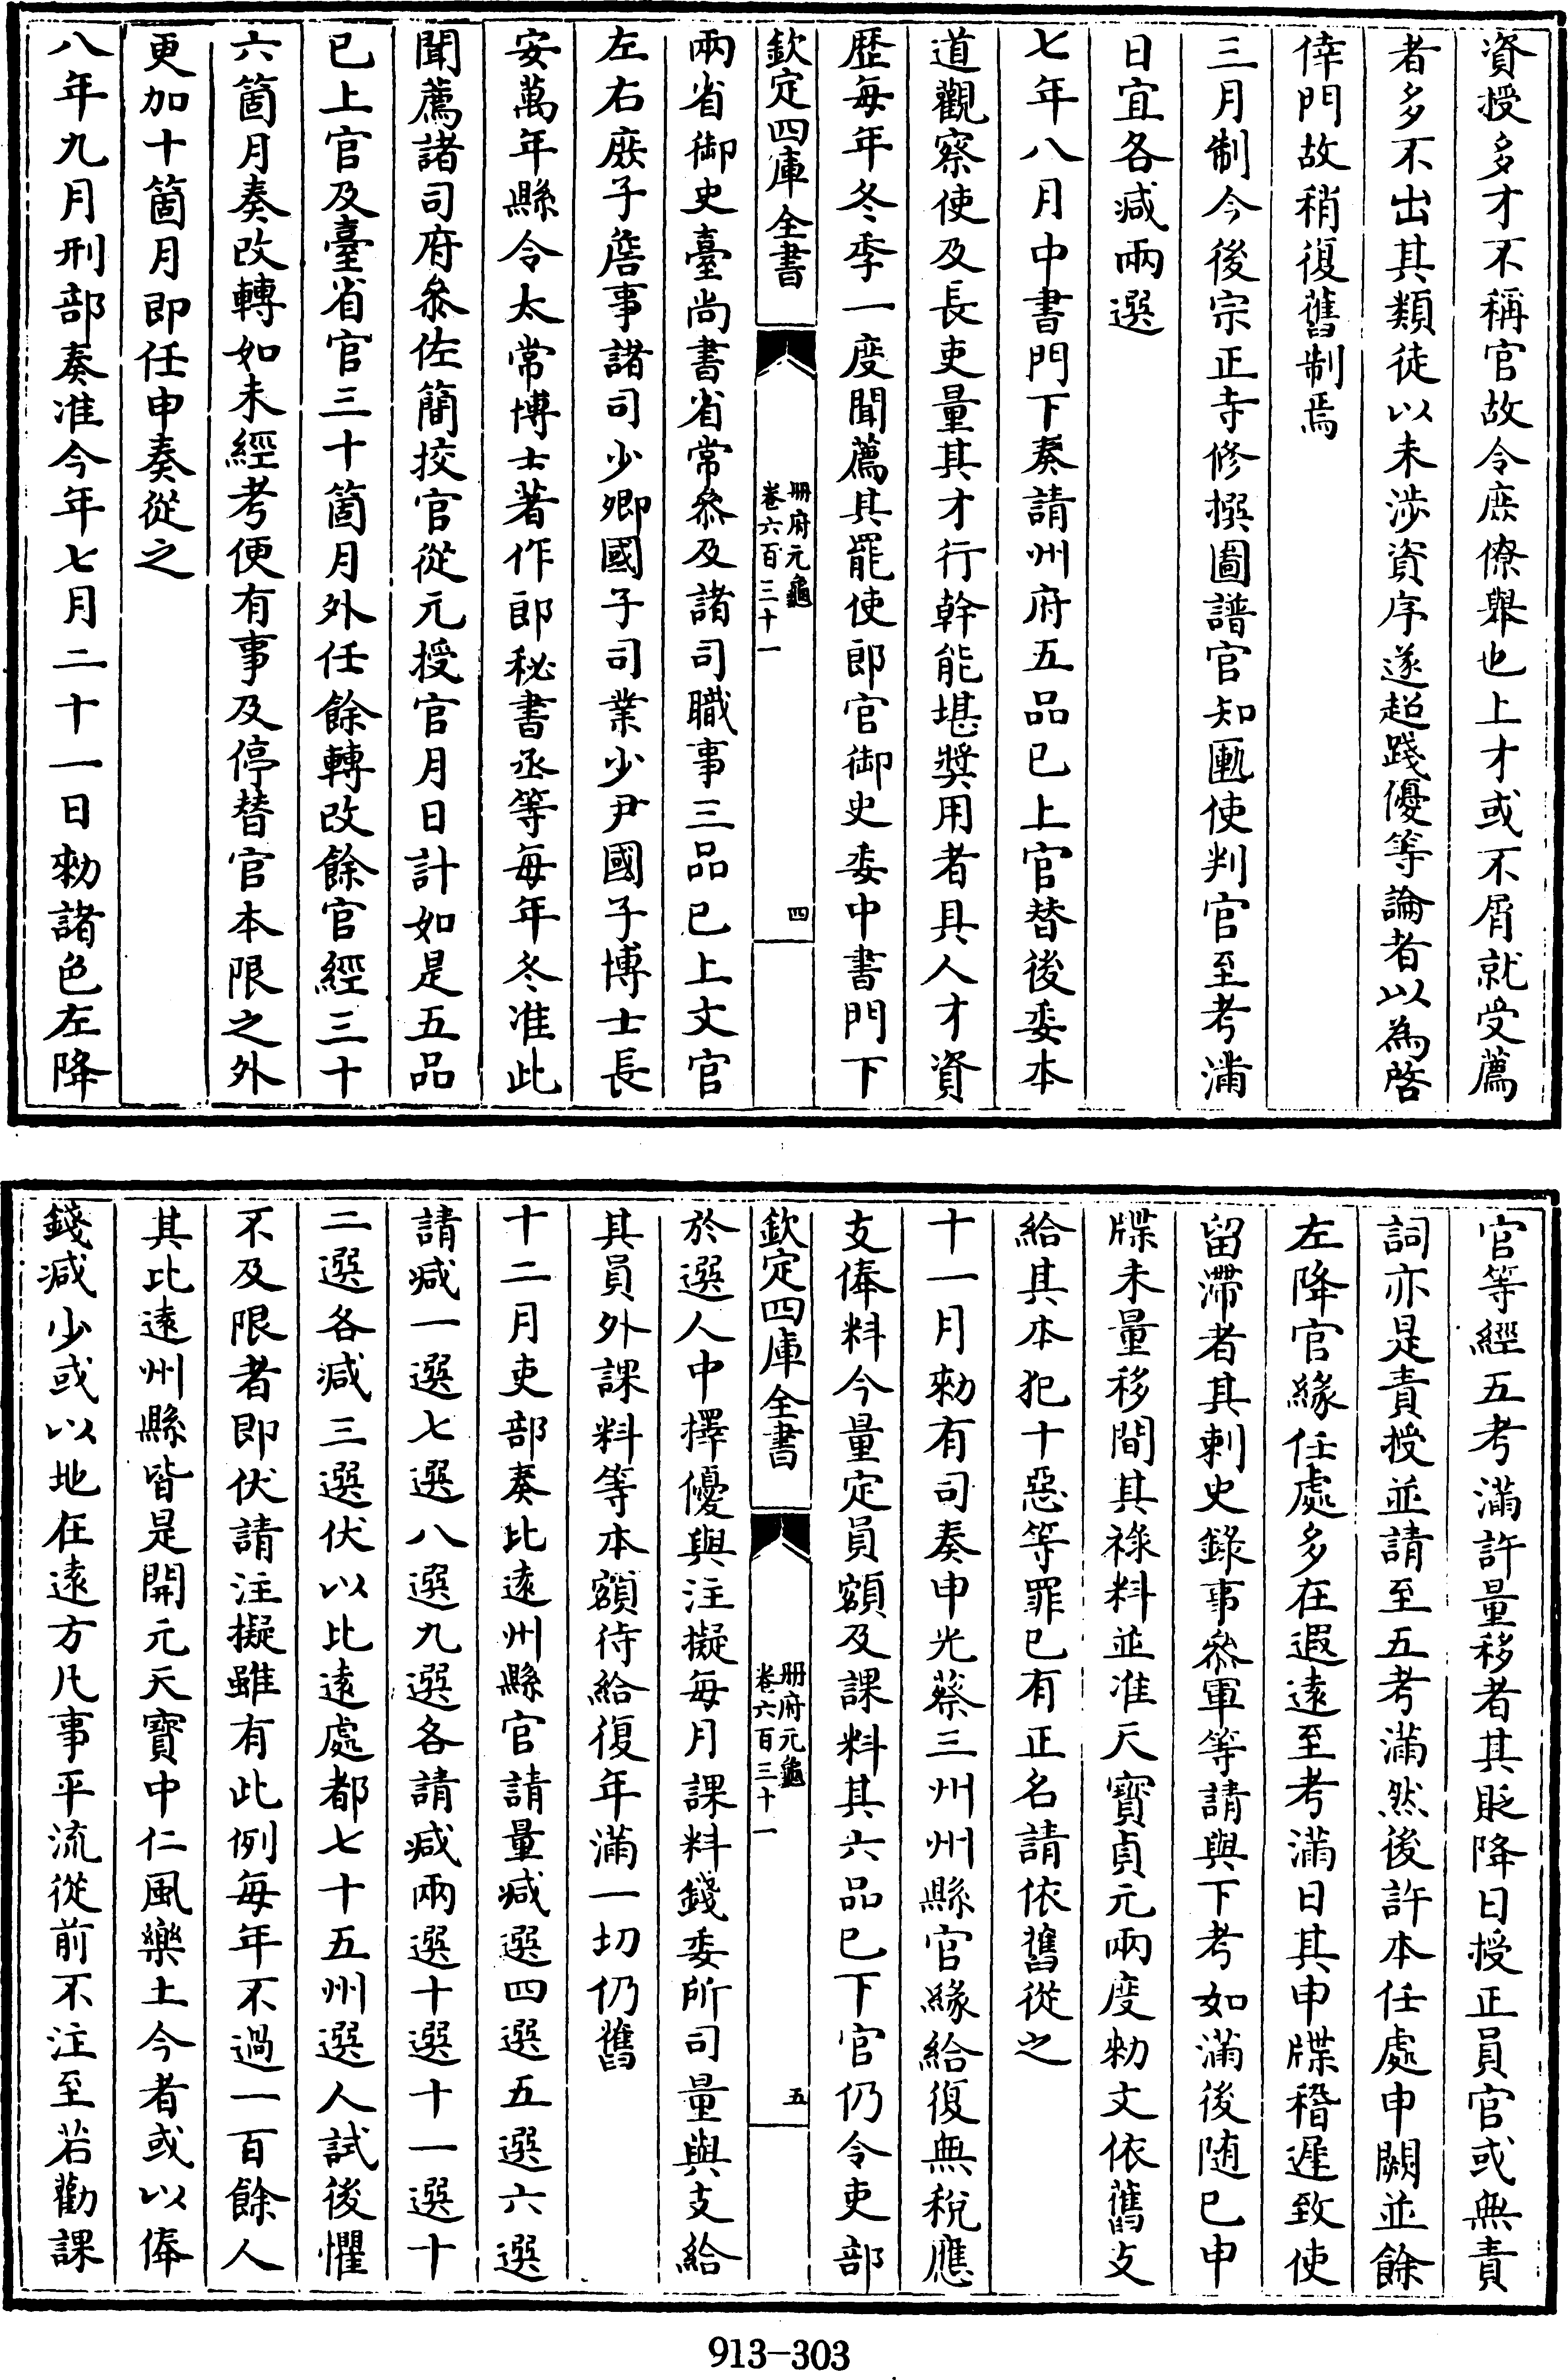 資授多才不稱官故令庶僚舉也上才或不屑就受薦
者多不出其類徒以未涉資序遂超踐優等論者以為啓
倖門故稍復舊制焉
三月制今後宗正寺修撰圖譜官知匭使判官至考滿
日宜各减兩選
七年八月中書門下奏請州府五品已上官替後委本
道觀察使及長吏量其才行幹能堪獎用者具人才資
歷每年冬季一度聞薦其罷使郎官御史委中書門下
欽定四庫全書
冊府元龜
卷六百三十一
四
兩省御史臺尚書省常叅及諸司職事三品已上文官
左右庶子詹事諸司少卿國子司業少尹國子博士長
安萬年縣令太常博士著作郎秘書丞等每年冬准此
聞薦諸司府叅佐簡挍官從元授官月日計如是五品
已上官及臺省官三十箇月外任餘轉改餘官經三十
六箇月奏改轉如未經考便有事及停替官本限之外
更加十箇月即任申奏從之
八年九月刑部奏准今年七月二十一日勑諸色左降
官等經五考滿許量移者其貶降日授正員官或無責
詞亦是責授並請至五考滿然後許本任處申闕並餘
左降官緣任處多在遐遠至考滿日其申牒稽遲致使
留滯者其刺史錄事叅軍等請與下考如滿後随已申
牒未量移間其祿料並准天寶貞元兩度勑文依舊支
給其本犯十惡等罪已有正名請依舊從之
十一月勑有司奏申光蔡三州州縣官緣給復無稅應
支俸料今量定員額及課料其六品已下官仍令吏部
欽定四庫全書
冊府元龜
卷六百三十一
五
於選人中擇優與注擬每月課料錢委所司量與支給
其員外課料等本額待給復年滿一切仍舊
十二月吏部奏比遠州縣官請量减選四選五選六選
請减一選七選八選九選各請减兩選十選十一選十
二選各减三選伏以比遠處都七十五州選人試後懼
不及限者即伏請注擬雖有此例每年不過一百餘人
其比遠州縣皆是開元天寶中仁風樂土今者或以俸
錢减少或以地在遠方凡事平流從前不注至若勸課
913-303